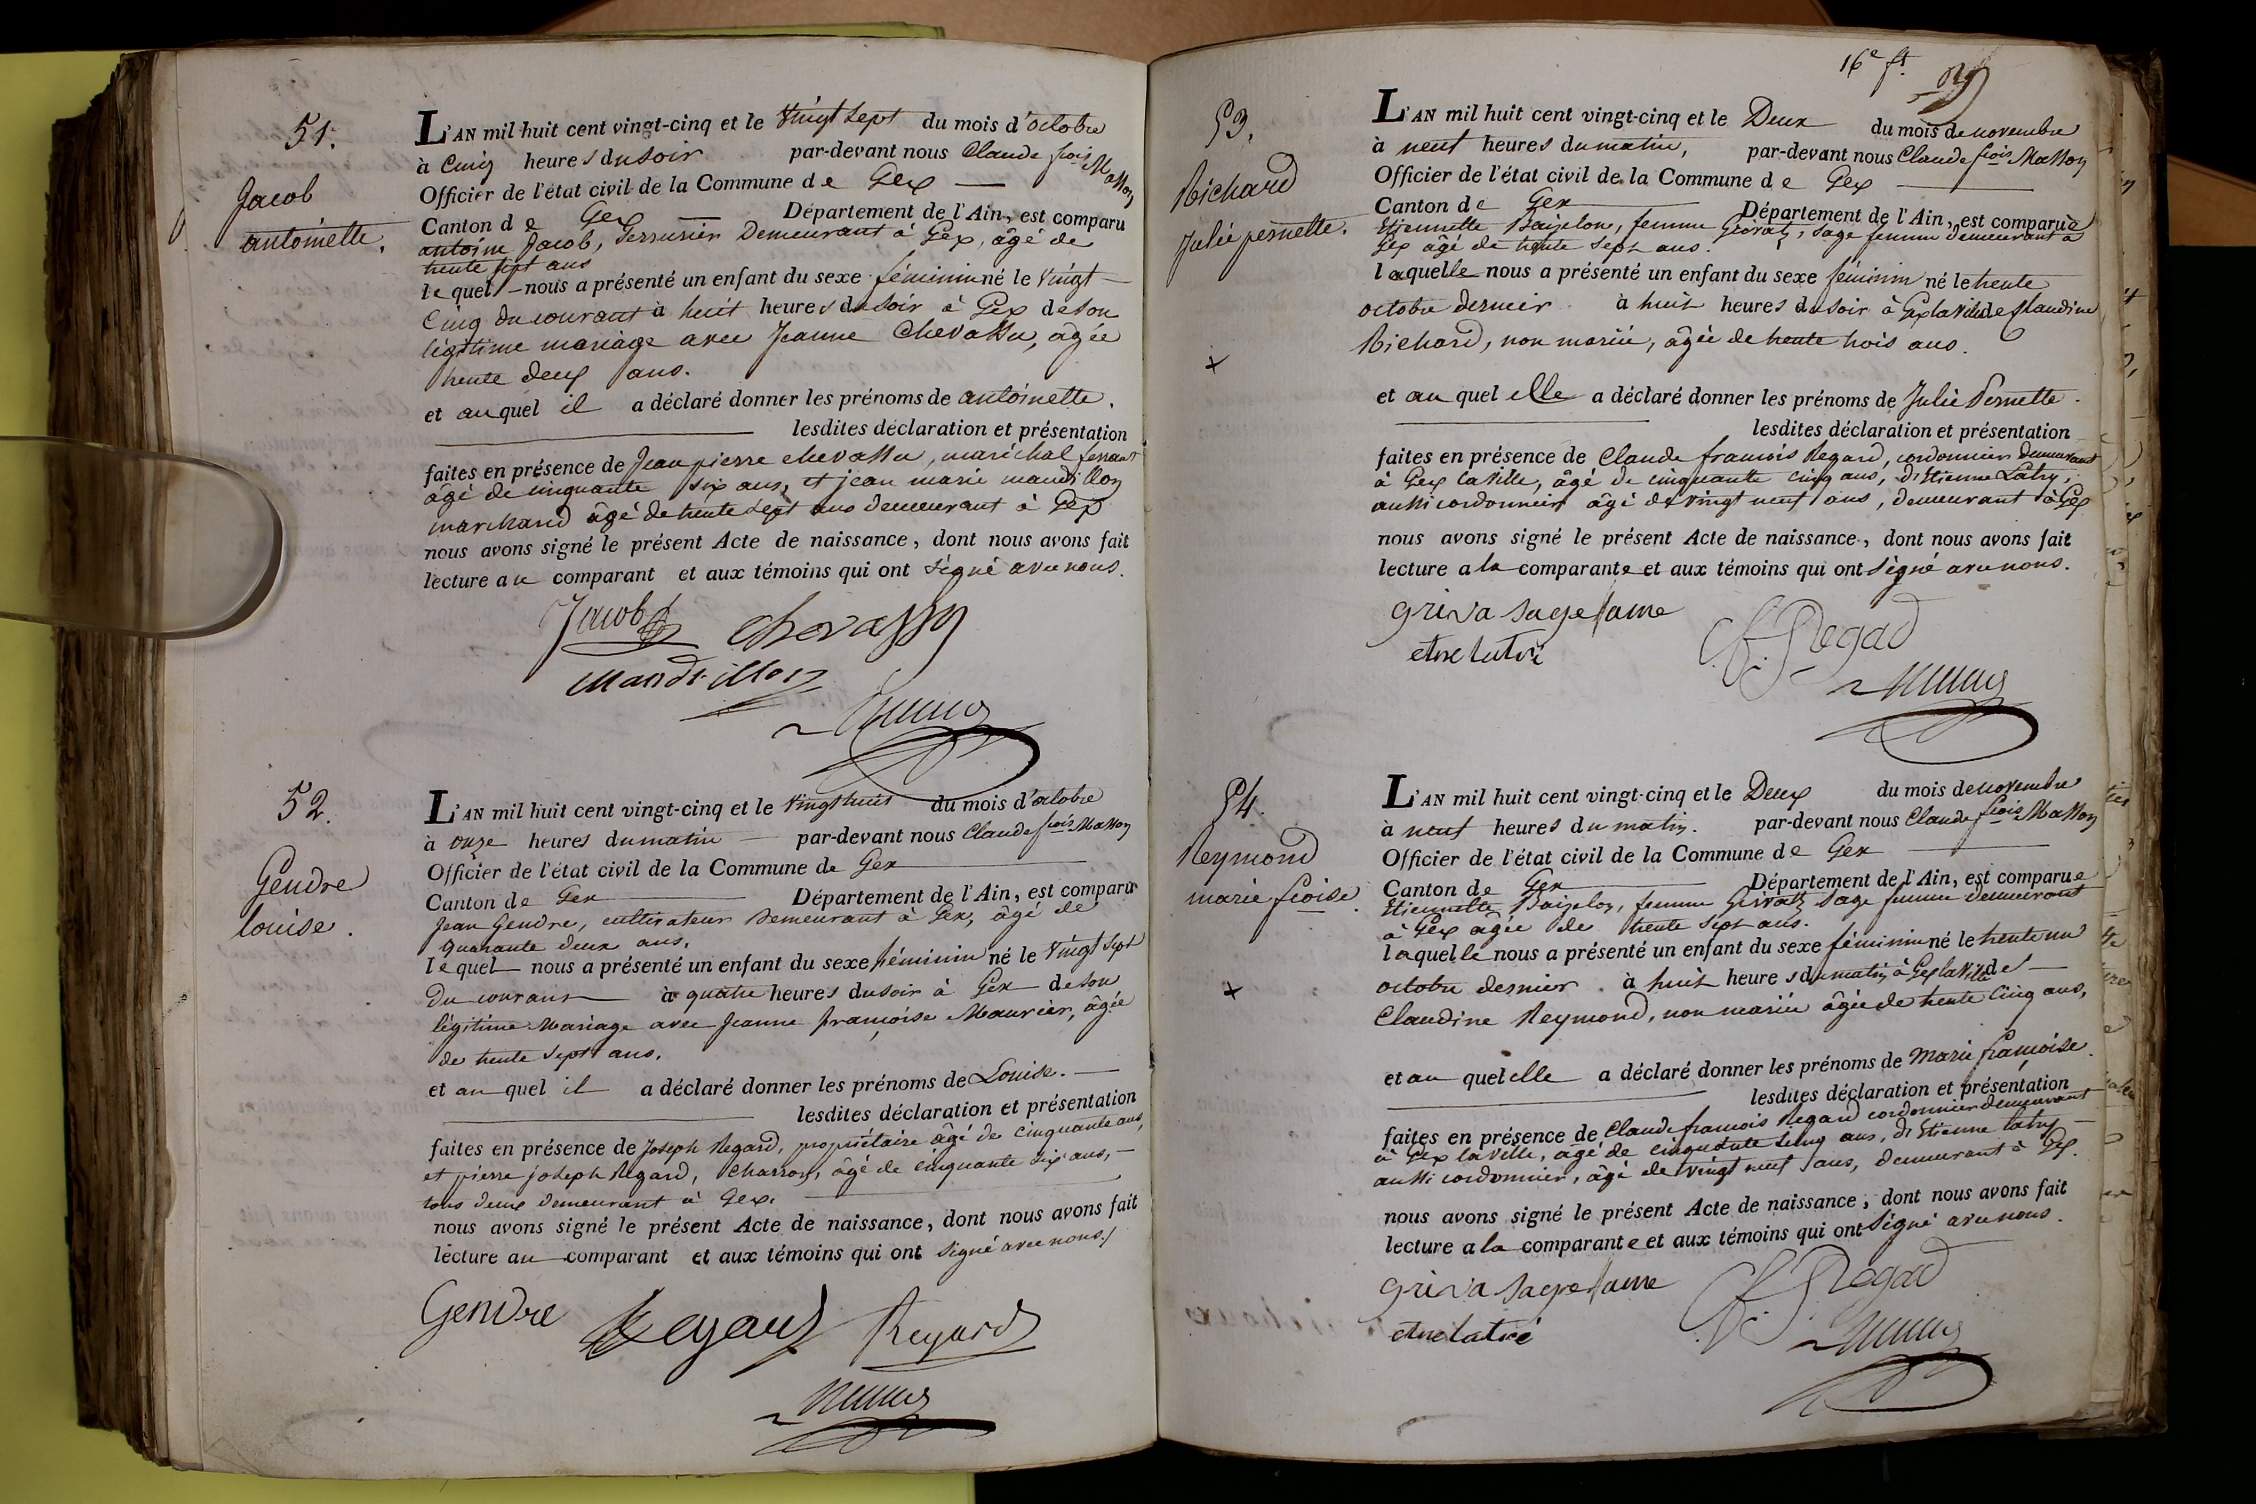 51.
Jacob
antoinette.
L'AN mil huit cent vingt-cinq et le vingt sept du mois d'octobre
à cinq heures du soir par-devant nous Claude fçois Masson
Officier de l'état civil de la Commune de Gex
Canton de Gex Département de l'Ain, est comparu
antoine Jacob, Serrurier Demeurant à Gex, âgé de
trente sept ans
lequel nous a présenté un enfant du sexe féminin né le vingt
cinq du courant à huit heures du soir à Gex de son
légitime mariage avec Jeanne Chevassu, âgée
trente deux ans.
et auquel il a déclaré donner les prénoms de antoinette.
lesdites déclaration et présentation
faites en présence de Jean pierre chevassu, maréchal ferrant
âgé de cinquante six ans, et jean marie mandrillon
marchand âgé de trente sept ans demeurant à Gex
nous avons signé le présent Acte de naissance, dont nous avons fait
lecture au comparant et aux témoins qui ont signé avec nous.
Jacob chevassu
Mandrillon
52.
Gendre
louise.
L'AN mil huit cent vingt-cinq et le vingt huit du mois d'octobre
à onze heures du matin par-devant nous Claude fçois Masson
Officier de l'état civil de la Commune de Gex
Canton de Gex Département de l'Ain, est comparu
Jean Gendre, cultivateur Demeurant à Gex, âgé de
quarante deux ans.
lequel nous a présenté un enfant du sexe féminin né le vingt sept
du courant à quatre heures du soir à Gex de son
légitime Mariage avec Jeanne françoise Maurier, âgée
de trente sept ans.
et au quel il a déclaré donner les prénoms de Louise.
lesdites déclaration et présentation
faites en présence de Joseph Regard, propriétaire âgé de cinquante ans,
et pierre joseph Regard, charron, âgé de cinquante six ans,
tous deux demeurant à Gex.
nous avons signé le présent Acte de naissance, dont nous avons fait
lecture au comparant et aux témoins qui ont signé avec nous./
Gendre Regard Regard
16e ft.
53.
Richard
Julie pernette.
L'AN mil huit cent vingt-cinq et le Deux du mois de novembre
à neuf heures du matin, par-devant nous Claude fçois Masson
Officier de l'état civil de la Commune de Gex
Canton de Gex Département de l'Ain, est comparue
Etiennette Baizelon, femme Grivatz, sage femme demeurant à
Gex âgé de trente sept ans.
laquelle nous a présenté un enfant du sexe féminin né le trente
octobre dernier à huit heures du soir à Gex la Ville de Claudine
Richard, non mariée, âgée de trente trois ans.
et au quel elle a déclaré donner les prénoms de Julie Pernette.
lesdites déclaration et présentation
faites en présence de Claude francois Regard, cordonnier demeurant
à Gex la Ville, âgé de cinquante cinq ans, d'Etienne Latry,
aussi cordonnier âgé de vingt neuf ans, demeurant à Gex
nous avons signé le présent Acte de naissance, dont nous avons fait
lecture a la comparante et aux témoins qui ont signé avec nous.
griva sage fame
C. f. Regad
etne latri
54.
Reymond
marie fçoise.
L'AN mil huit cent vingt-cinq et le Deux du mois de novembre
à neuf heures du matin. par-devant nous Claude fçois Masson
Officier de l'état civil de la Commune de Gex
Canton de Gex Département de l'Ain, est comparue
Etiennette Baizelon, femme Grivatz sage femme demeurant
à Gex âgée de trente sept ans.
laquelle nous a présenté un enfant du sexe féminin né le trente un
octobre dernier à huit heures du matin, à Gex la Ville de
Claudine Reymond, non mariée âgée de trente cinq ans,
et au quel elle a déclaré donner les prénoms de Marie françoise.
lesdites déclaration et présentation
faites en présence de Claude francois Regard cordonnier demeurant
à Gex la Ville, âgé de cinquante cinq ans, d'Etienne latry
aussi cordonnier, âgé de vingt neuf ans, demeurant à Gex.
nous avons signé le présent Acte de naissance, dont nous avons fait
lecture a la comparante et aux témoins qui ont signé avec nous.
griva sage fame
C. f. Regad
etne latri